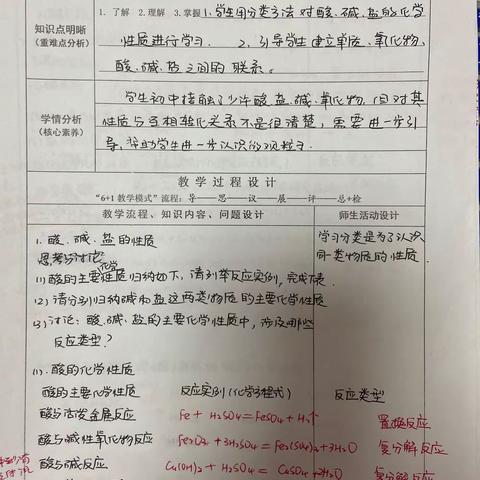 知识点明晰
(重难点分析)
1. 了解 2. 理解 3. 掌握 1. 学生用分类方法对酸、碱、盐的化学
性质进行学习. 2. 引导学生建立单质、氧化物、
酸、碱、盐之间的联系。
学情分析
(核心素养)
学生初中接触了少许酸、盐、碱、氧化物,但对其
性质与互相转化关系不是很清楚,需要进一步引
导,帮助学生进一步认识微观粒子.
教 学 过 程 设 计
“6+1 教学模式”流程: 导—思—议—展—评—总+检
教学流程、知识内容、问题设计
师生活动设计
1. 酸、碱、盐的性质
思考与讨论
(1) 酸的主要化学性质归纳如下,请列举反应实例,完成下表.
(2) 请分别归纳碱和盐这两类物质的主要化学性质
(3) 讨论: 酸、碱、盐的主要化学性质中,涉及哪些
反应类型?
学习分类是为了认识
同类物质的性质.
(1). 酸的化学性质
酸的主要化学性质 反应实例(化学方程式) 反应类型
酸与活泼金属反应 Fe + H₂SO₄ = FeSO₄ + H₂↑ 置换反应
酸与碱性氧化物反应 Fe₂O₃ + 3H₂SO₄ = Fe₂(SO₄)₃ + 3H₂O 复分解反应
酸与碱反应 Ca(OH)₂ + H₂SO₄ = CaSO₄ + 2H₂O 复分解反应